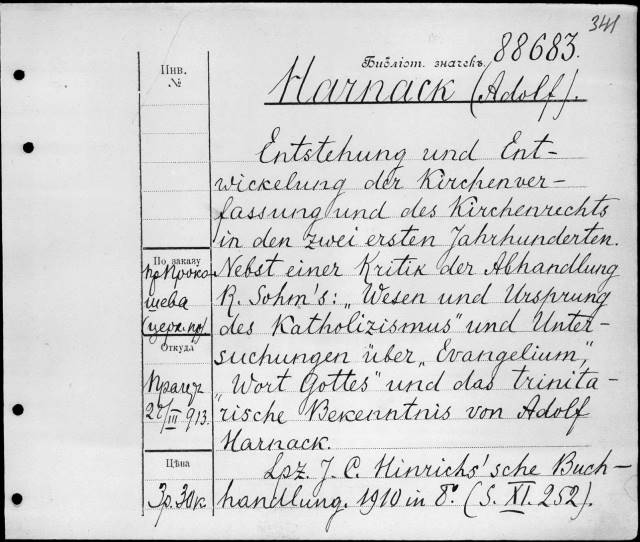 341
Библіот. значекъ. 88683.
Инв.
№
Harnack (Adolf).
Entstehung und Ent-
wickelung der Kirchenver-
fassung und des Kirchenrechts
in den zwei ersten Jahrhunderten.
По заказу
пр. Проко-
шева
(церк. пр)
Nebst einer Kritik der Abhandlung
R. Sohm's: „Wesen und Ursprung
des Katholizismus" und Unter-
suchungen über „Evangelium",
„Wort Gottes" und das trinita-
rische Bekenntnis von Adolf
Harnack.
Откуда
III 913.
Цѣна
3р. 30к
Lpz. J. C. Hinrichs'sche Buch-
handlung. 1910 in 8º. (S. XI. 252).